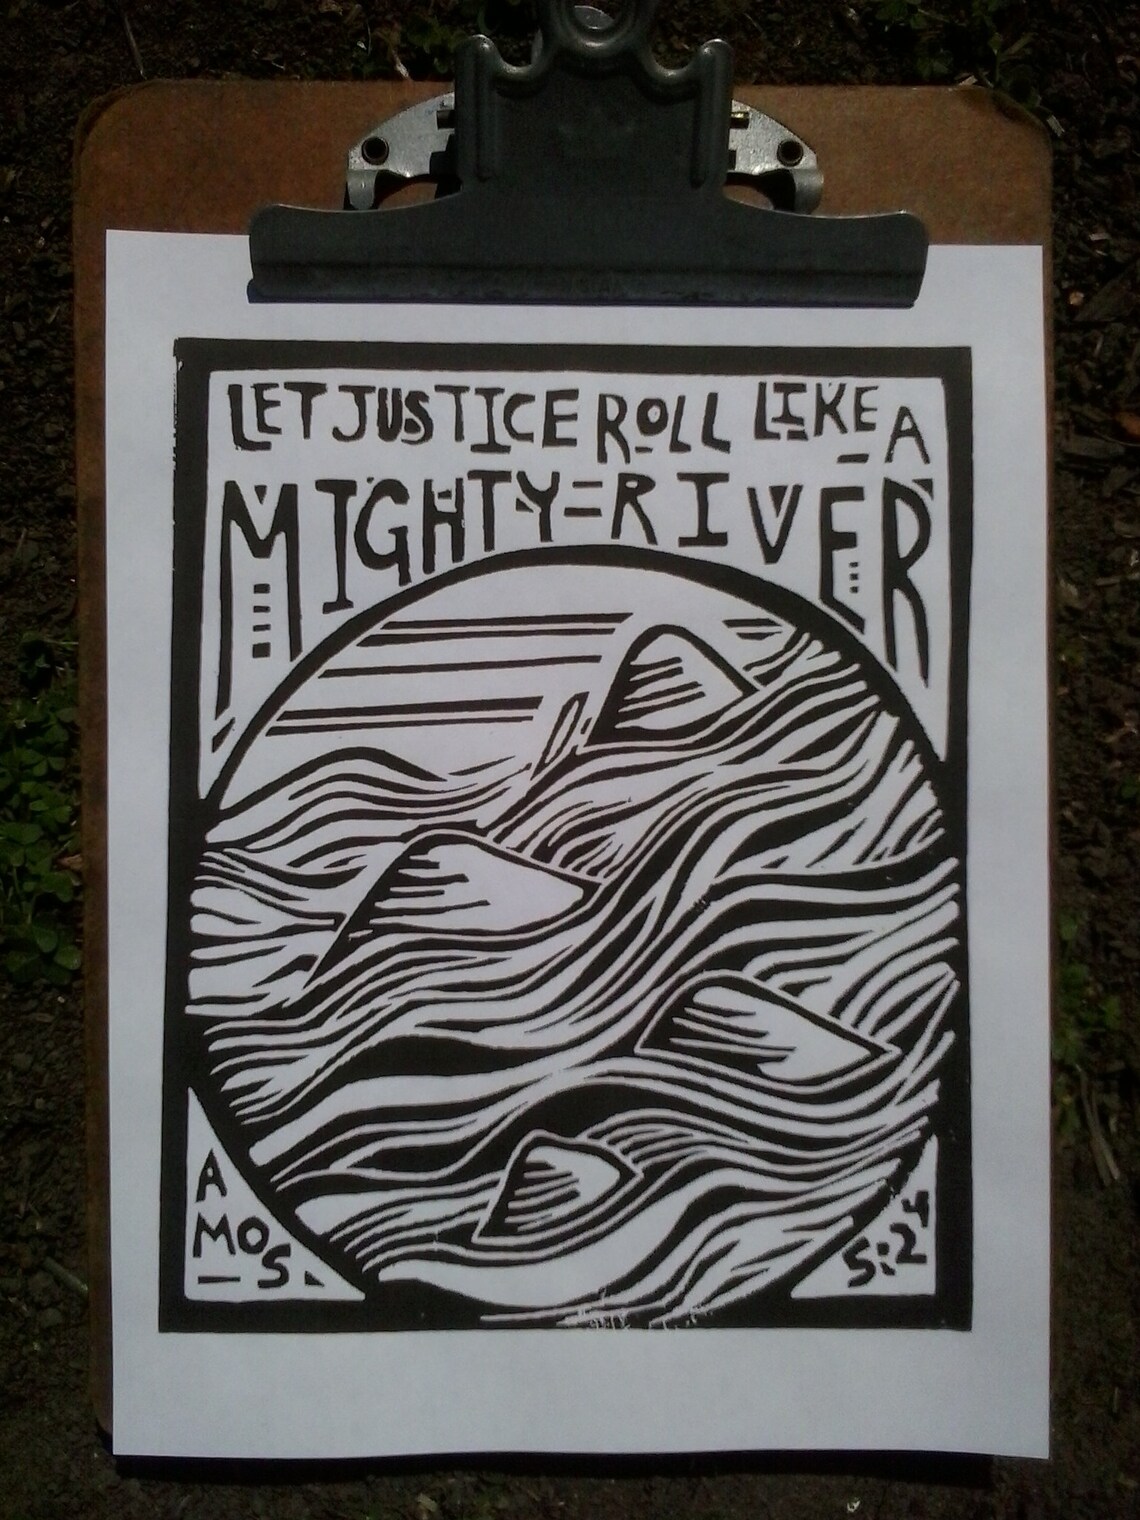 LET JUSTICE ROLL LIKE A
MIGHTY RIVER
AMOS
5:24